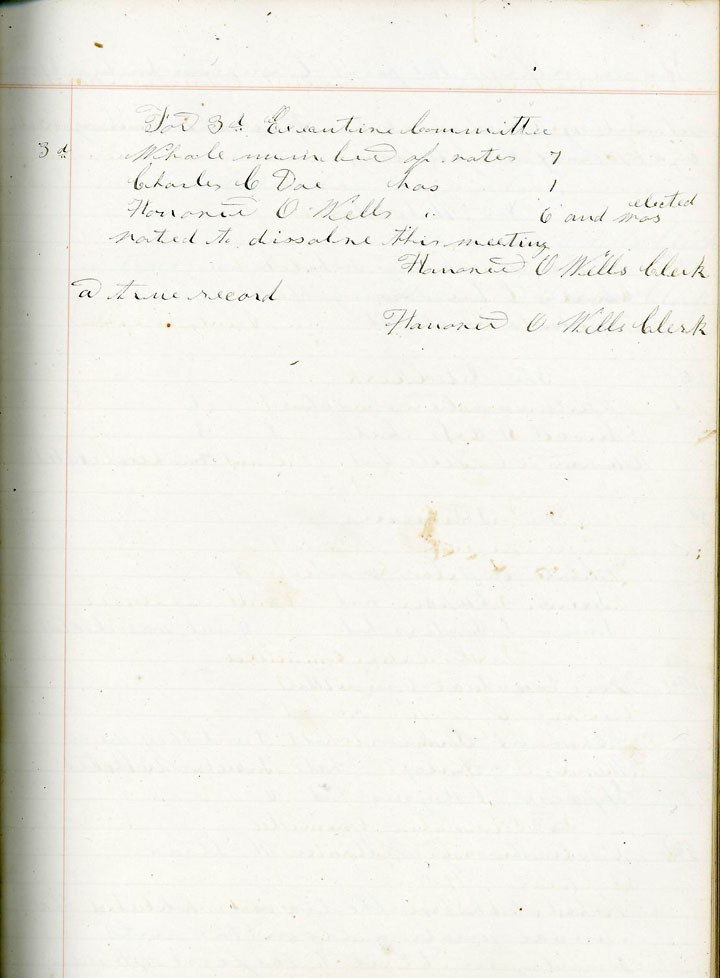 For 3d Executive Committee
3d Whole number of votes 7
Charles C Doe has 1
Hanover O Wells " 6 and was elected
voted to dissolve this meeting
Hanover O Wells Clerk
a true record
Hanover O Wells Clerk